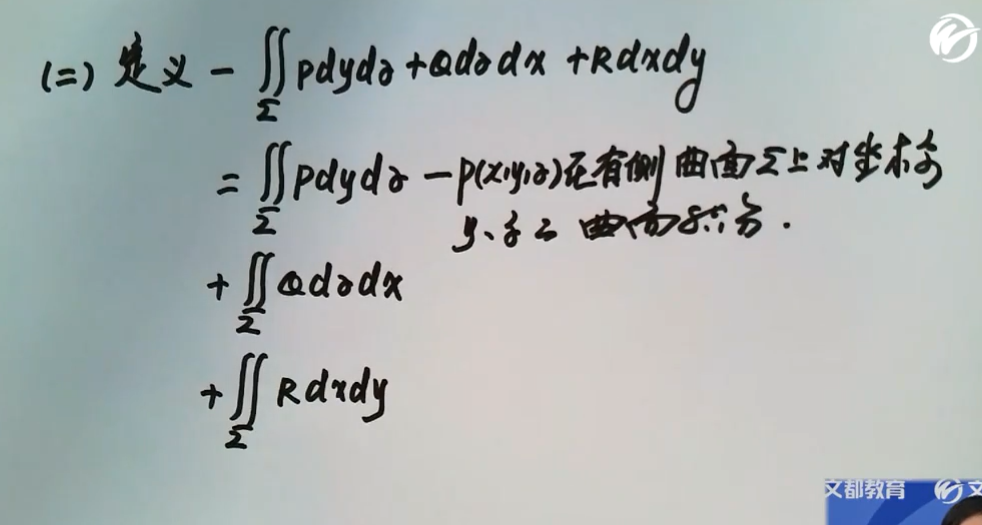 (二) 定义 - ∬_Σ Pdydz + Qdzdx + Rdxdy
= ∬_Σ Pdydz - P(x,y,z)在有侧曲面Σ上对坐标
y、z之曲面积分.
+ ∬_Σ Qdzdx
+ ∬_Σ Rdxdy
文都教育 文